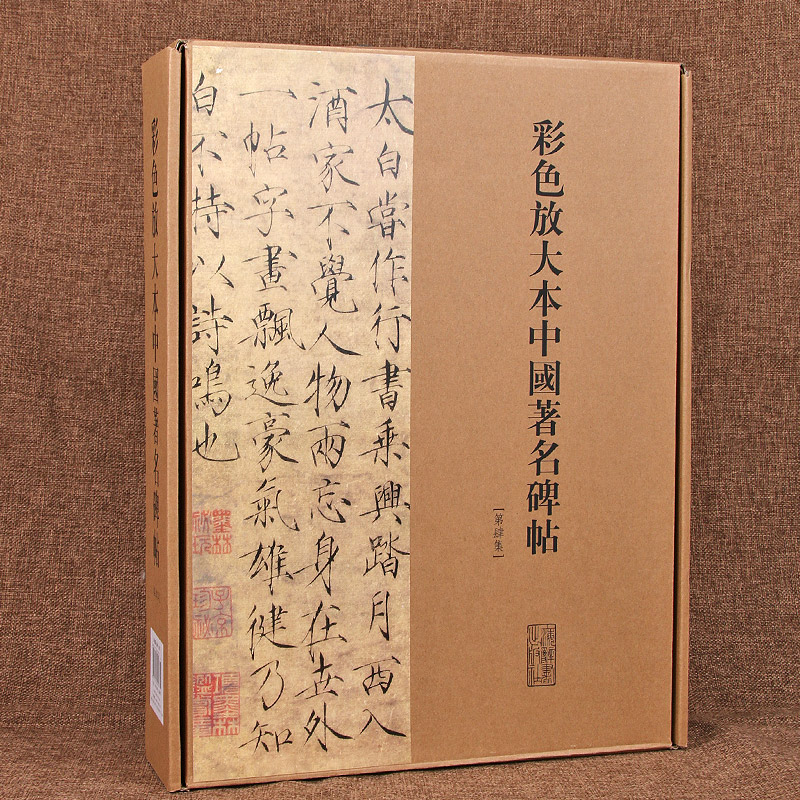 彩色放大本中國著名碑帖
[第肆集]
太白嘗作行書乘興踏月西入
酒家不覺人物兩忘身在世外
一帖字畫飄逸豪氣雄健乃知
白不特以詩鳴也
彩色放大本中國著名碑帖